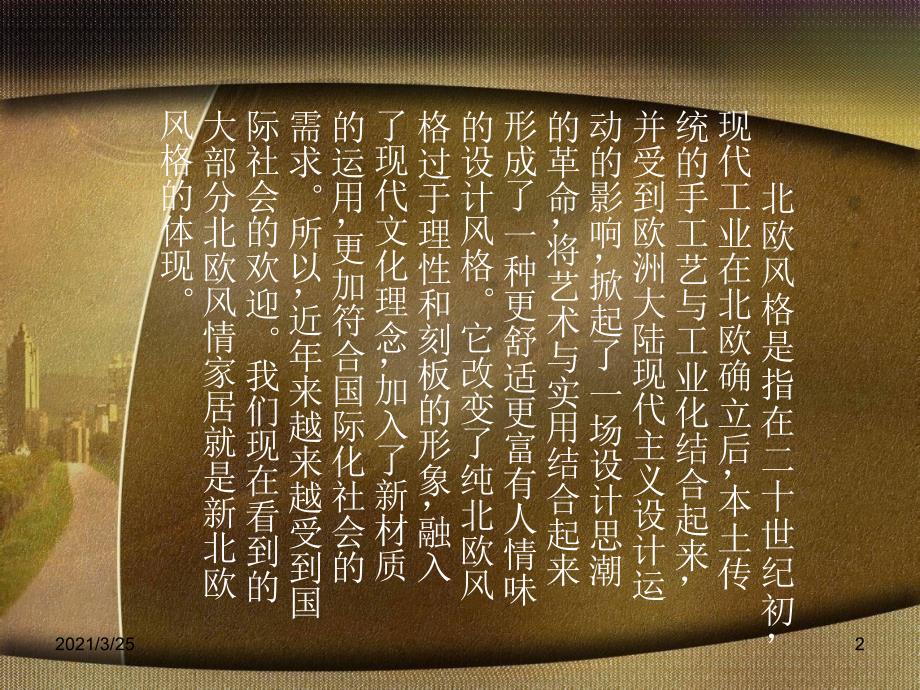 北欧风格是指在二十世纪初,
现代工业在北欧确立后,本土传
统的手工艺与工业化结合起来,
并受到欧洲大陆现代主义设计运
动的影响,掀起了一场设计思潮
的革命,将艺术与实用结合起来
形成了一种更舒适更富有人情味
的设计风格。它改变了纯北欧风
格过于理性和刻板的形象,融入
了现代文化理念,加入了新材质
的运用,更加符合国际化社会的
需求。所以,近年来越来越受到国
际社会的欢迎。我们现在看到的
大部分北欧风情家居就是新北欧
风格的体现。
2021/3/25
2